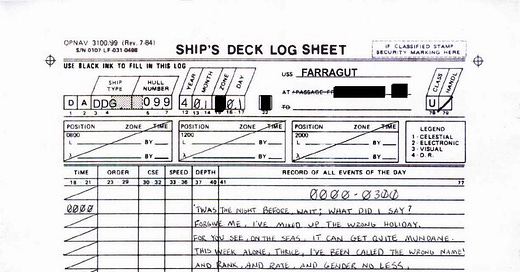 OPNAV 3100/99 (Rev. 7-84)
S/N 0107 LF-031-0498
SHIP'S DECK LOG SHEET
IF CLASSIFIED STAMP
SECURITY MARKING HERE
USE BLACK INK TO FILL IN THIS LOG
SHIP TYPE
HULL NUMBER
YEAR
MONTH
ZONE
DAY
USS FARRAGUT
AT / PASSAGE FR
TO
CLASS
HANDL
D A DDG 099 4 01 01
U
POSITION ZONE TIME
0800
L BY
λ BY
POSITION ZONE TIME
1200
L BY
λ BY
POSITION ZONE TIME
2000
L BY
λ BY
LEGEND
1 - CELESTIAL
2 - ELECTRONIC
3 - VISUAL
4 - D.R.
TIME ORDER CSE SPEED DEPTH RECORD OF ALL EVENTS OF THE DAY
18 21 23 29 30 32 33 36 37 40 41 77
0000-0300
0000 'TWAS THE NIGHT BEFORE, WAIT; WHAT DID I SAY?
FORGIVE ME, I'VE MIXED UP THE WRONG HOLIDAY.
FOR YOU SEE, ON THE SEAS, IT CAN GET QUITE MUNDANE.
THIS WEEK ALONE, THRICE, I'VE BEEN CALLED THE WRONG NAME!
AND RANK, AND RATE, AND GENDER NO LESS,